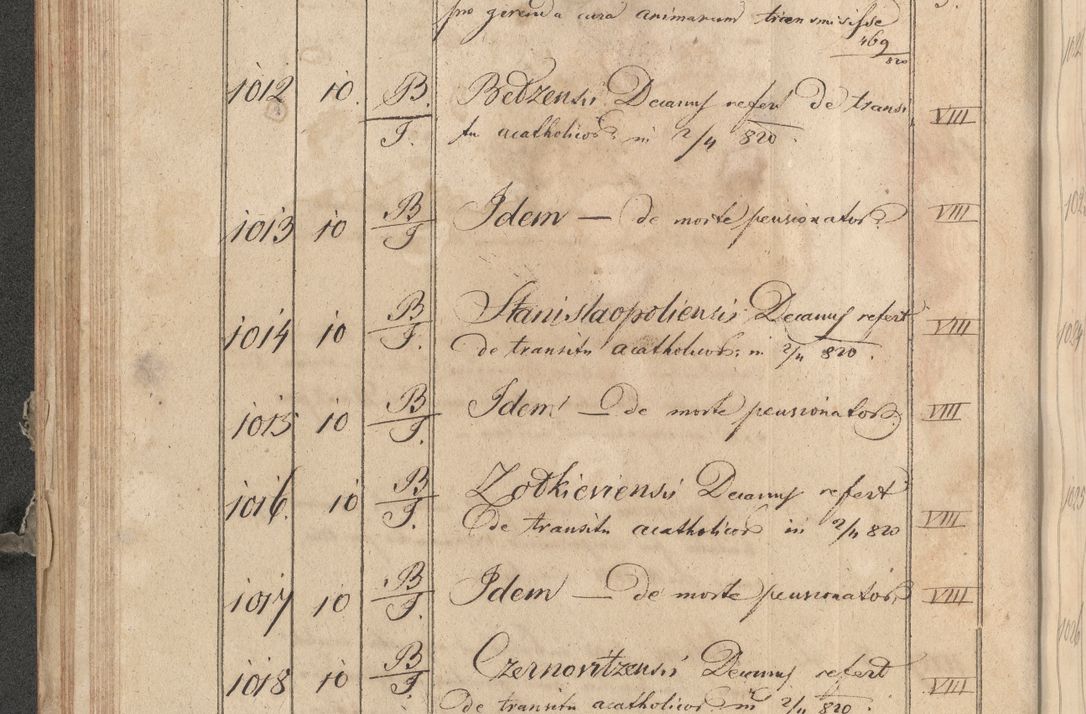 pro gerenda cura animarum transmisisse
469
820
1012 10. B. Bełzensis Decanus refert de transi
I. tu acatholicor: in 2/4 820. VIII
1013 10 B/I Idem — de morte pensionator. VIII
1014 10 B/I. Stanislaopoliensis Decanus refert VIII
de transitu acatholicor: in 2/4 820.
1015 10 B/I. Idem — de morte pensionator. VIII
1016. 10 B/I. Żołkieviensis Decanus refert
de transitu acatholicor in 2/4 820 VIII
1017 10 B/I. Idem — de morte pensionator. VIII
1018 10 B/I. Czernovitzensis Decanus refert VIII
de transitu acatholicor in 2/4 820.